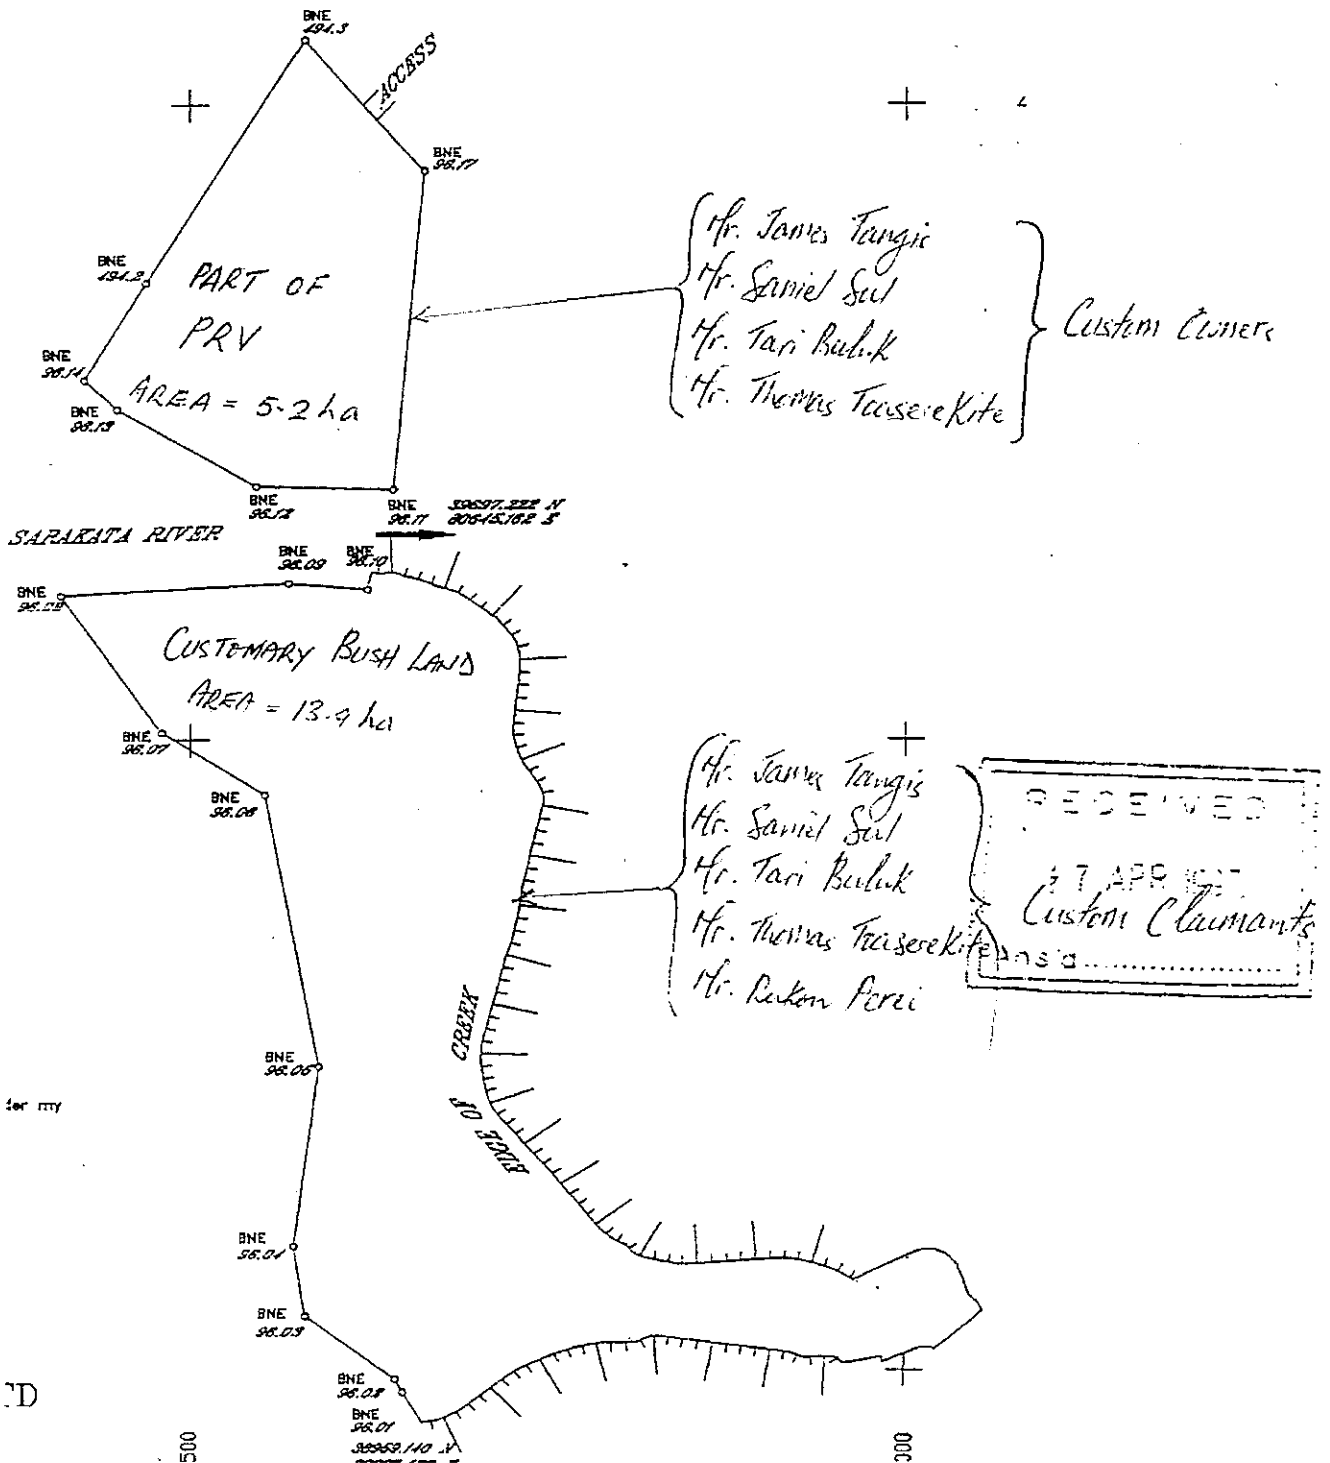 BNE
194.3
ACCESS
BNE
96.17
BNE
194.2
PART OF
PRV
AREA = 5.2 ha
BNE
96.14
BNE
96.13
BNE
96.12
BNE
96.11
39697.222 N
Mr. James Tangis
Mr. Saniel Sul
Mr. Tari Buluk
Mr. Thomas TasereKite
Custom Owners
SARAKATA RIVER
BNE
96.09
BNE
96.10
BNE
96.08
CUSTOMARY BUSH LAND
AREA = 13.9 ha
BNE
96.07
BNE
96.06
Mr. James Tangis
Mr. Saniel Sul
Mr. Tari Buluk
Mr. Thomas TasereKite
Mr. Rukon Perei
RECEIVED
Custom Claimants
BNE
96.05
EDGE OF CREEK
my
BNE
96.04
BNE
96.03
BNE
96.02
BNE
96.01
500
000